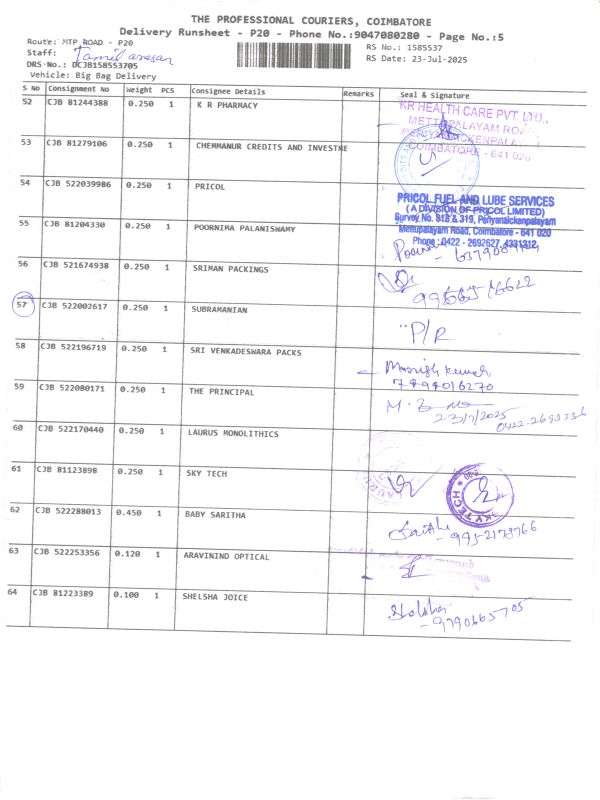 THE PROFESSIONAL COURIERS, COIMBATORE
Delivery Runsheet - P20 - Phone No.:9047080280 - Page No.:5
Route: MTP ROAD - P20
RS No.: 1585537
Staff:
RS Date: 23-Jul-2025
DRS-No.: DCJB158553705
Vehicle: Big Bag Delivery
S No Consignment No Weight PCS Consignee Details Remarks Seal & Signature
52 CJB 81244388 0.250 1 K R PHARMACY
KR HEALTH CARE PVT. LTD.,
METTUPALAYAM ROAD
COIMBATORE - 641 020
53 CJB 81279106 0.250 1 CHEMMANUR CREDITS AND INVESTME
54 CJB 522039986 0.250 1 PRICOL
PRICOL FUEL AND LUBE SERVICES
(A DIVISION OF PRICOL LIMITED)
Survey No. 318 & 319, Periyanaickenpalayam
Mettupalayam Road, Coimbatore - 641 020
Phone: 0422 - 2692627, 4331312
55 CJB 81204330 0.250 1 POORNIMA PALANISWAMY
56 CJB 521674938 0.250 1 SRIMAN PACKINGS
57 CJB 522002617 0.250 1 SUBRAMANIAN P/R
58 CJB 522196719 0.250 1 SRI VENKADESWARA PACKS
Manish kumar
59 CJB 522080171 0.250 1 THE PRINCIPAL
23/7/2025
60 CJB 522170440 0.250 1 LAURUS MONOLITHICS
61 CJB 81123898 0.250 1 SKY TECH
SKY TECH
62 CJB 522288013 0.450 1 BABY SARITHA
63 CJB 522253356 0.120 1 ARAVININD OPTICAL
64 CJB 81223389 0.100 1 SHELSHA JOICE
- 9790665705